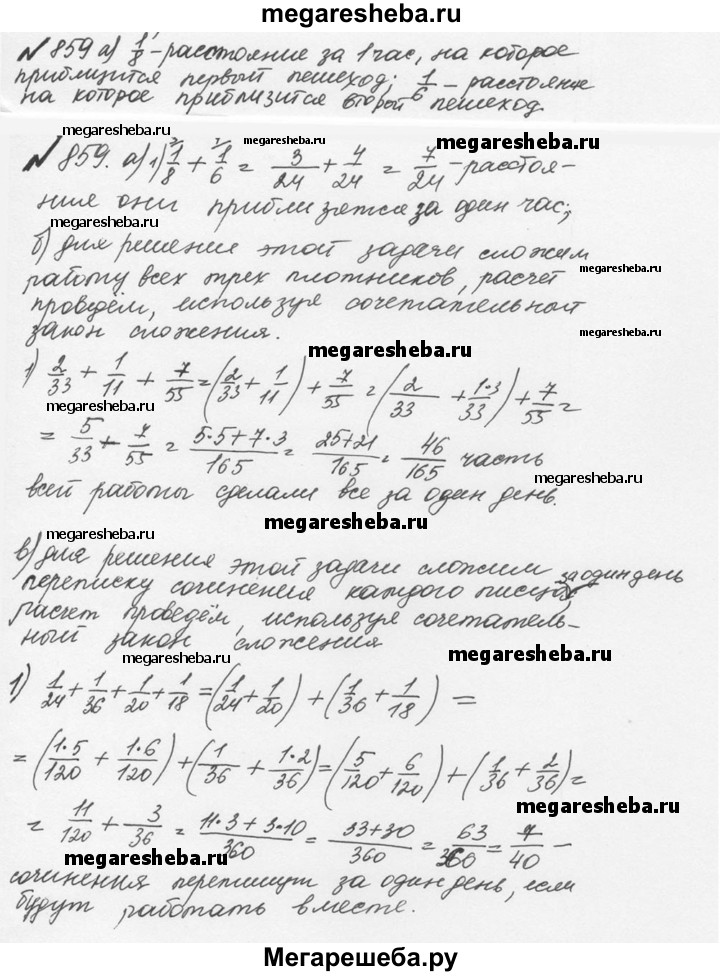 megaresheba.ru
№ 859 а) 1/8 - расстояние за 1 час, на которое
приблизится первый пешеход; 1/6 - расстояние
на которое приблизится второй пешеход.
megaresheba.ru megaresheba.ru megaresheba.ru
№ 859. а) 1) 1/8 + 1/6 = 3/24 + 4/24 = 7/24 - расстоя-
ние они приблизятся за один час;
megaresheba.ru
б) для решение этой задачи сложим
работу всех трех плотников, расчет
megaresheba.ru
проведём, используя сочетательный
закон сложения.
megaresheba.ru
megaresheba.ru
1) 2/33 + 1/11 + 7/55 = (2/33 + 1/11) + 7/55 = (2/33 + 1·3/33) + 7/55 =
megaresheba.ru
= 5/33 + 7/55 = 5·5+7·3/165 = 25+21/165 = 46/165 часть
megaresheba.ru
всей работы сделали все за один день.
megaresheba.ru
megaresheba.ru
в) для решения этой задачи сложим
переписку сочинения каждого писца за один день,
megaresheba.ru
расчет проведём, используя сочетатель-
ный закон сложения
megaresheba.ru megaresheba.ru
1) 1/24 + 1/36 + 1/20 + 1/18 = (1/24 + 1/20) + (1/36 + 1/18) =
= (1·5/120 + 1·6/120) + (1/36 + 1·2/36) = (5/120 + 6/120) + (1/36 + 2/36) =
megaresheba.ru
= 11/120 + 3/36 = 11·3+3·10/360 = 33+30/360 = 63/360 = 7/40 -
megaresheba.ru
сочинения перепишут за один день, если
будут работать вместе.
Мегарешеба.ру